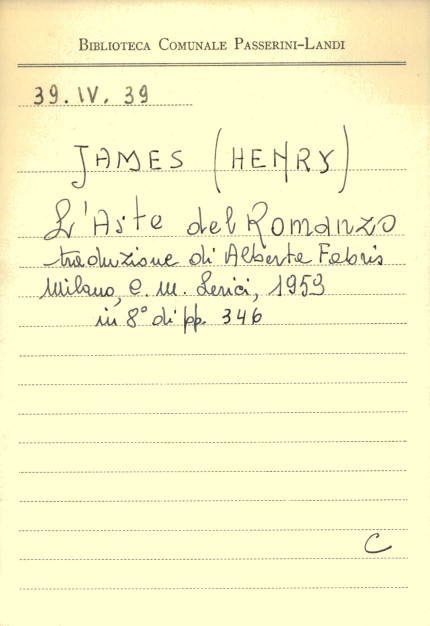 BIBLIOTECA COMUNALE PASSERINI-LANDI
39. IV. 39
JAMES (HENRY)
L'Arte del Romanzo
traduzione di Alberta Fabris
Milano, C. M. Lerici, 1959
in 8° di pp. 346
C